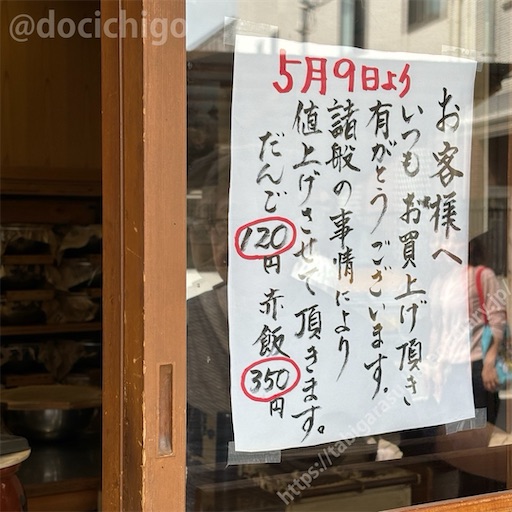 @docichigo
5月9日より
お客様へ
いつもお買上げ頂き
有がとうございます。
諸般の事情により
値上げさせて頂きます。
だんご120円 赤飯350円